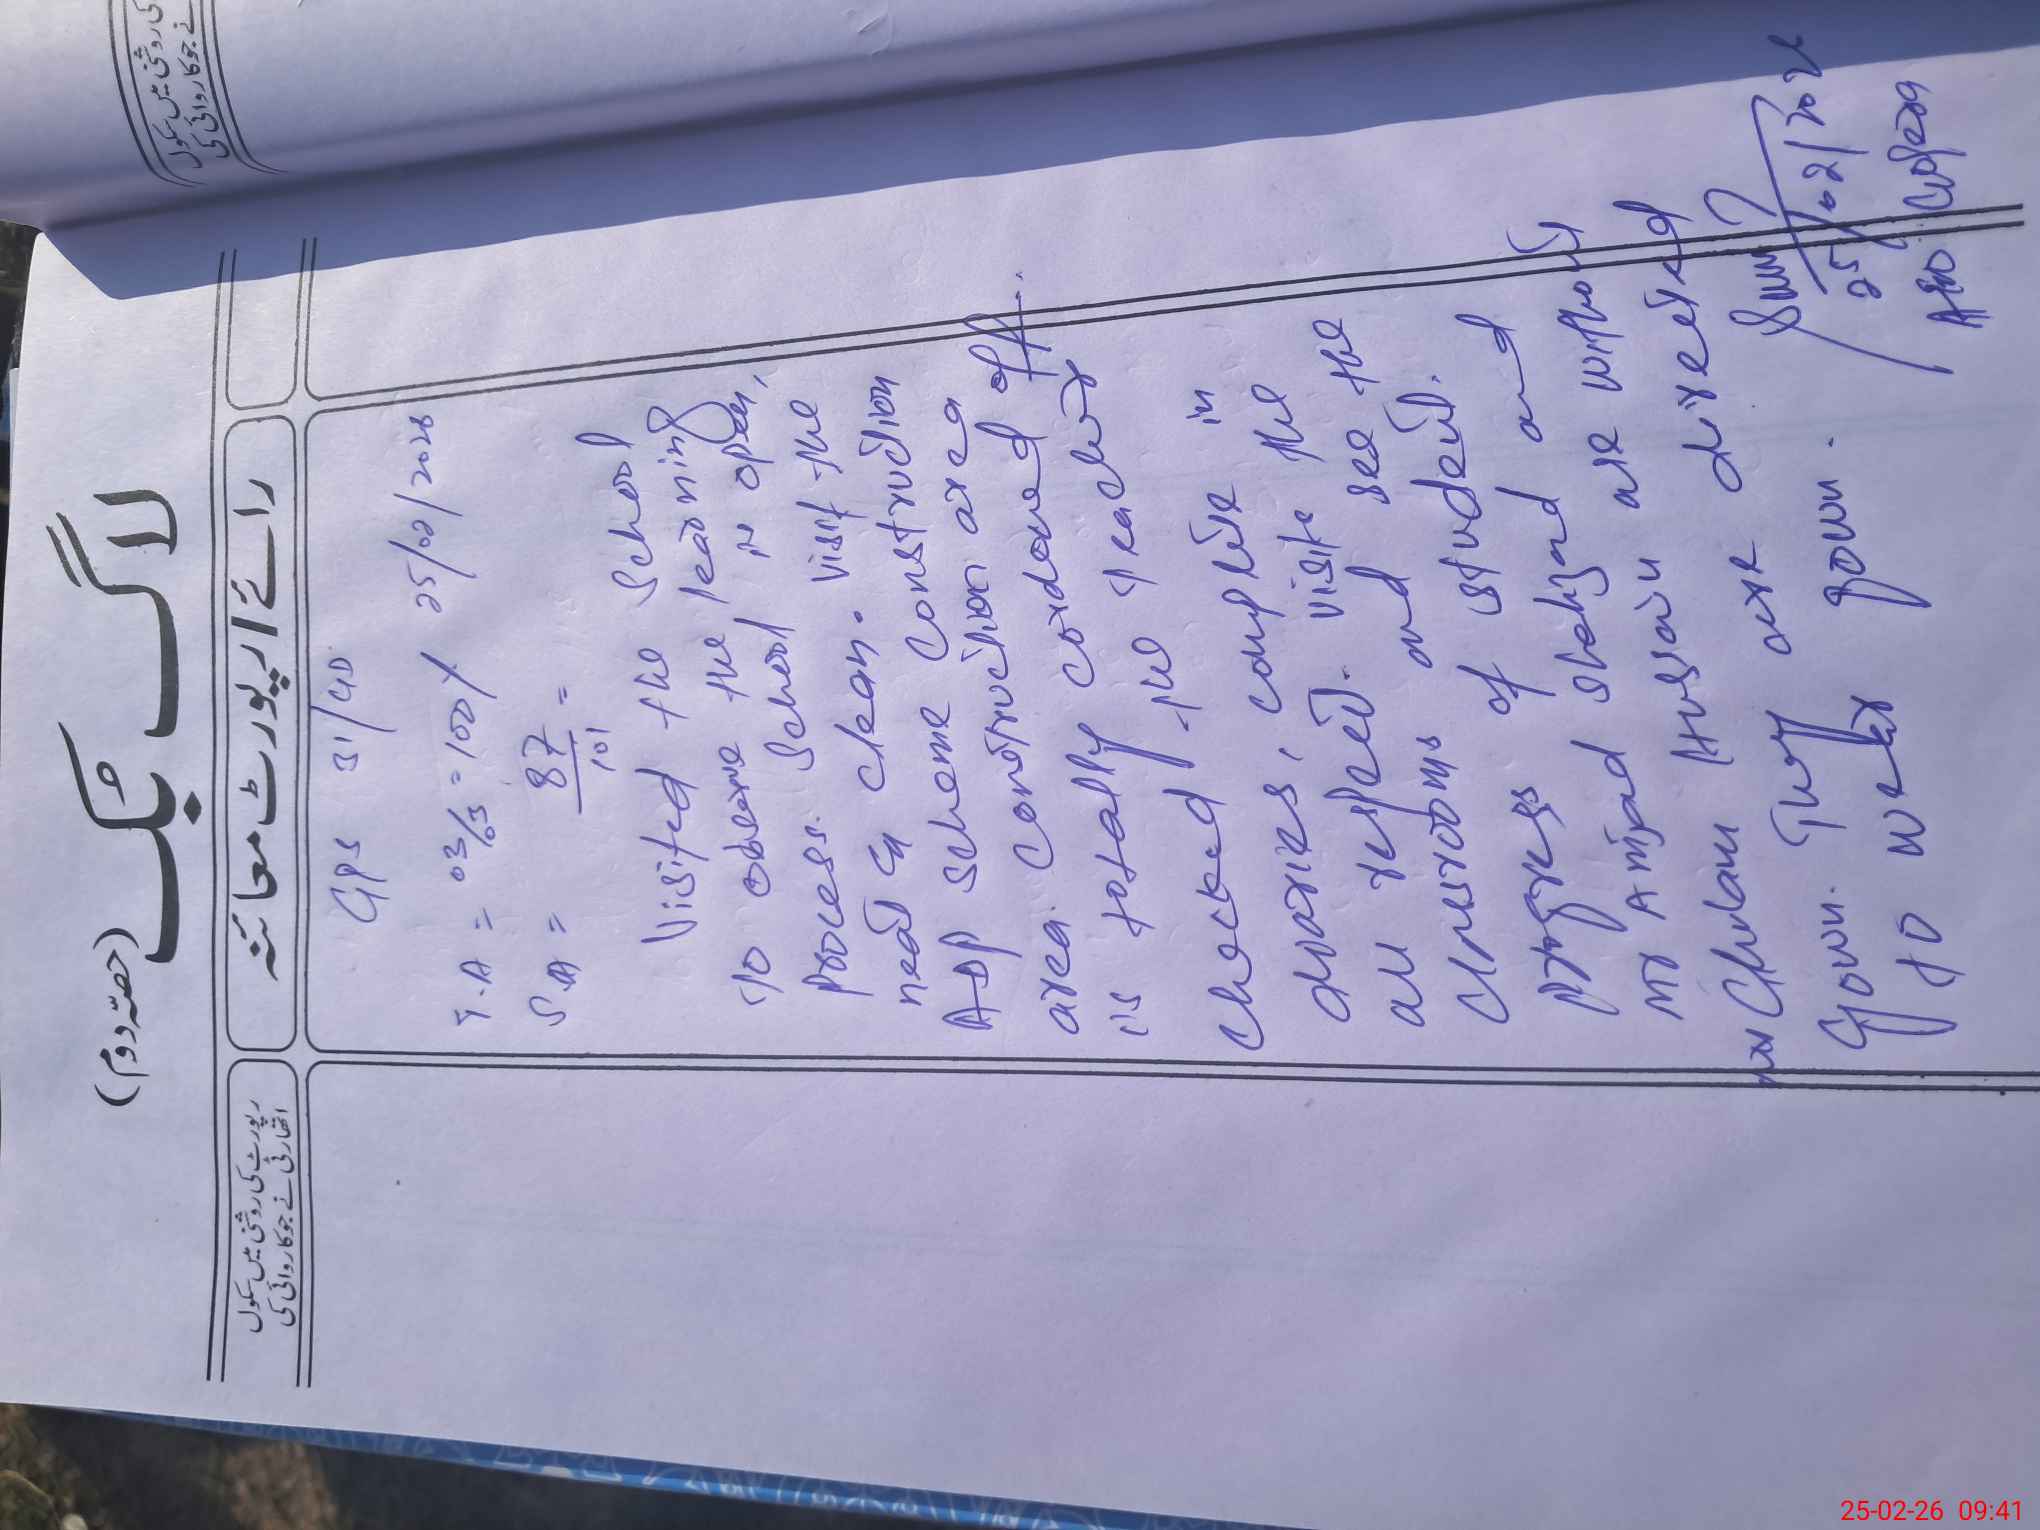 لاگ بک
(حصہ دوم)
رائے / رپورٹ معائنہ
رپورٹ کی روشنی میں سکول
اتھارٹی نے جو کاروائی کی
کی روشنی میں سکول
نے جو کاروائی کی
GPS 31/4D
25/02/2026
T.A = 03/03 = 100%
S.A = 87/101 =
Visited the School
to observe the learning
Process. School is open,
neat & clean. Visit the
ADP Scheme Construction
area. Construction area
is totally cordoned off.
checked the Teacher
diaries, complete in
all respect. visit the
classrooms and see the
progress of student.
Mr Amjad Shehzad and
Mr Ghulam Hussain are without
Gown. They are directed
to wear gown.
25/02/202
AEO
25-02-26 09:41